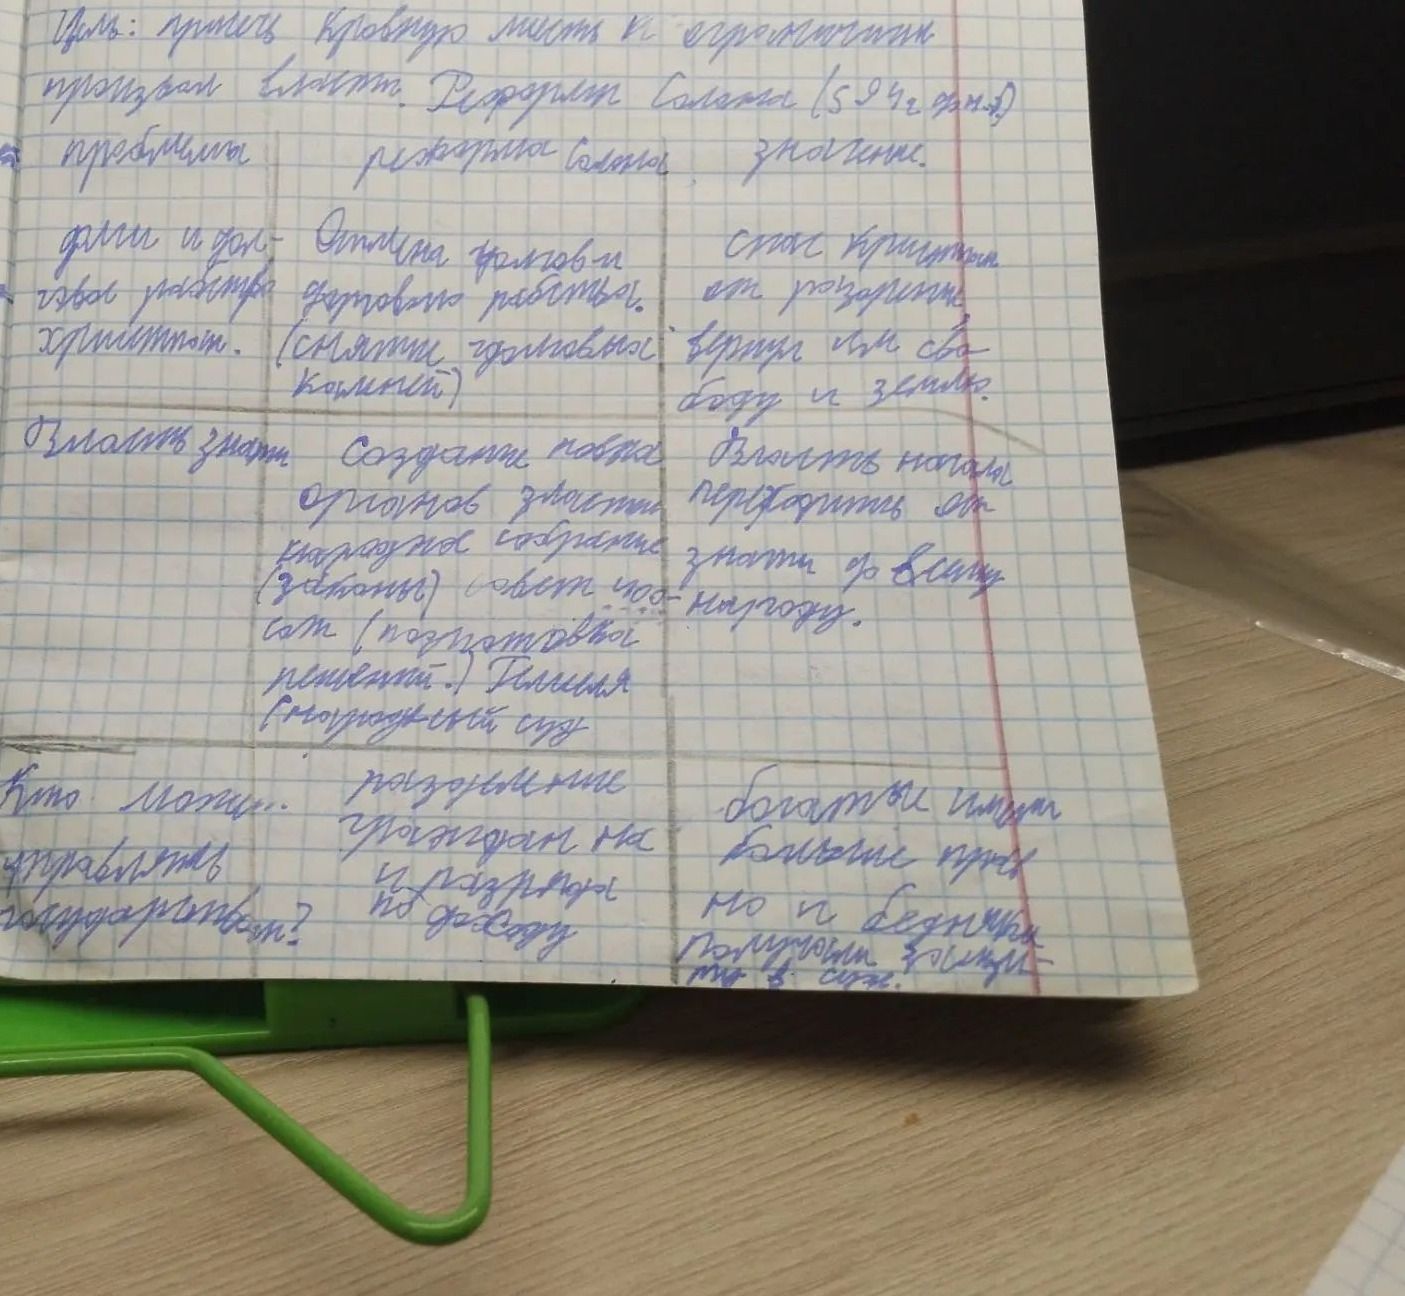 Цель: пресечь кровную месть и ограничить
произвол власти. Реформы Солона (594 г до н.э)
проблемы реформа Солона значение.
долги и дол- Отмена долгов и спас крестьян
говое рабство долгового рабства. от разорения,
крестьян. (снятие долговых вернул им сво-
камней) боду и землю.
Власть знати Создание новых Власть начала
органов власти переходить от
народное собрание знати ко всему
(законы) совет 400- народу.
сот (подготовка
решений.) Гелиея
(народный суд
Кто може... разделение богатые имели
управлять граждан на больше прав
государством? 4 разряда но и бедняки
по доходу получили защи-
ту в суде.